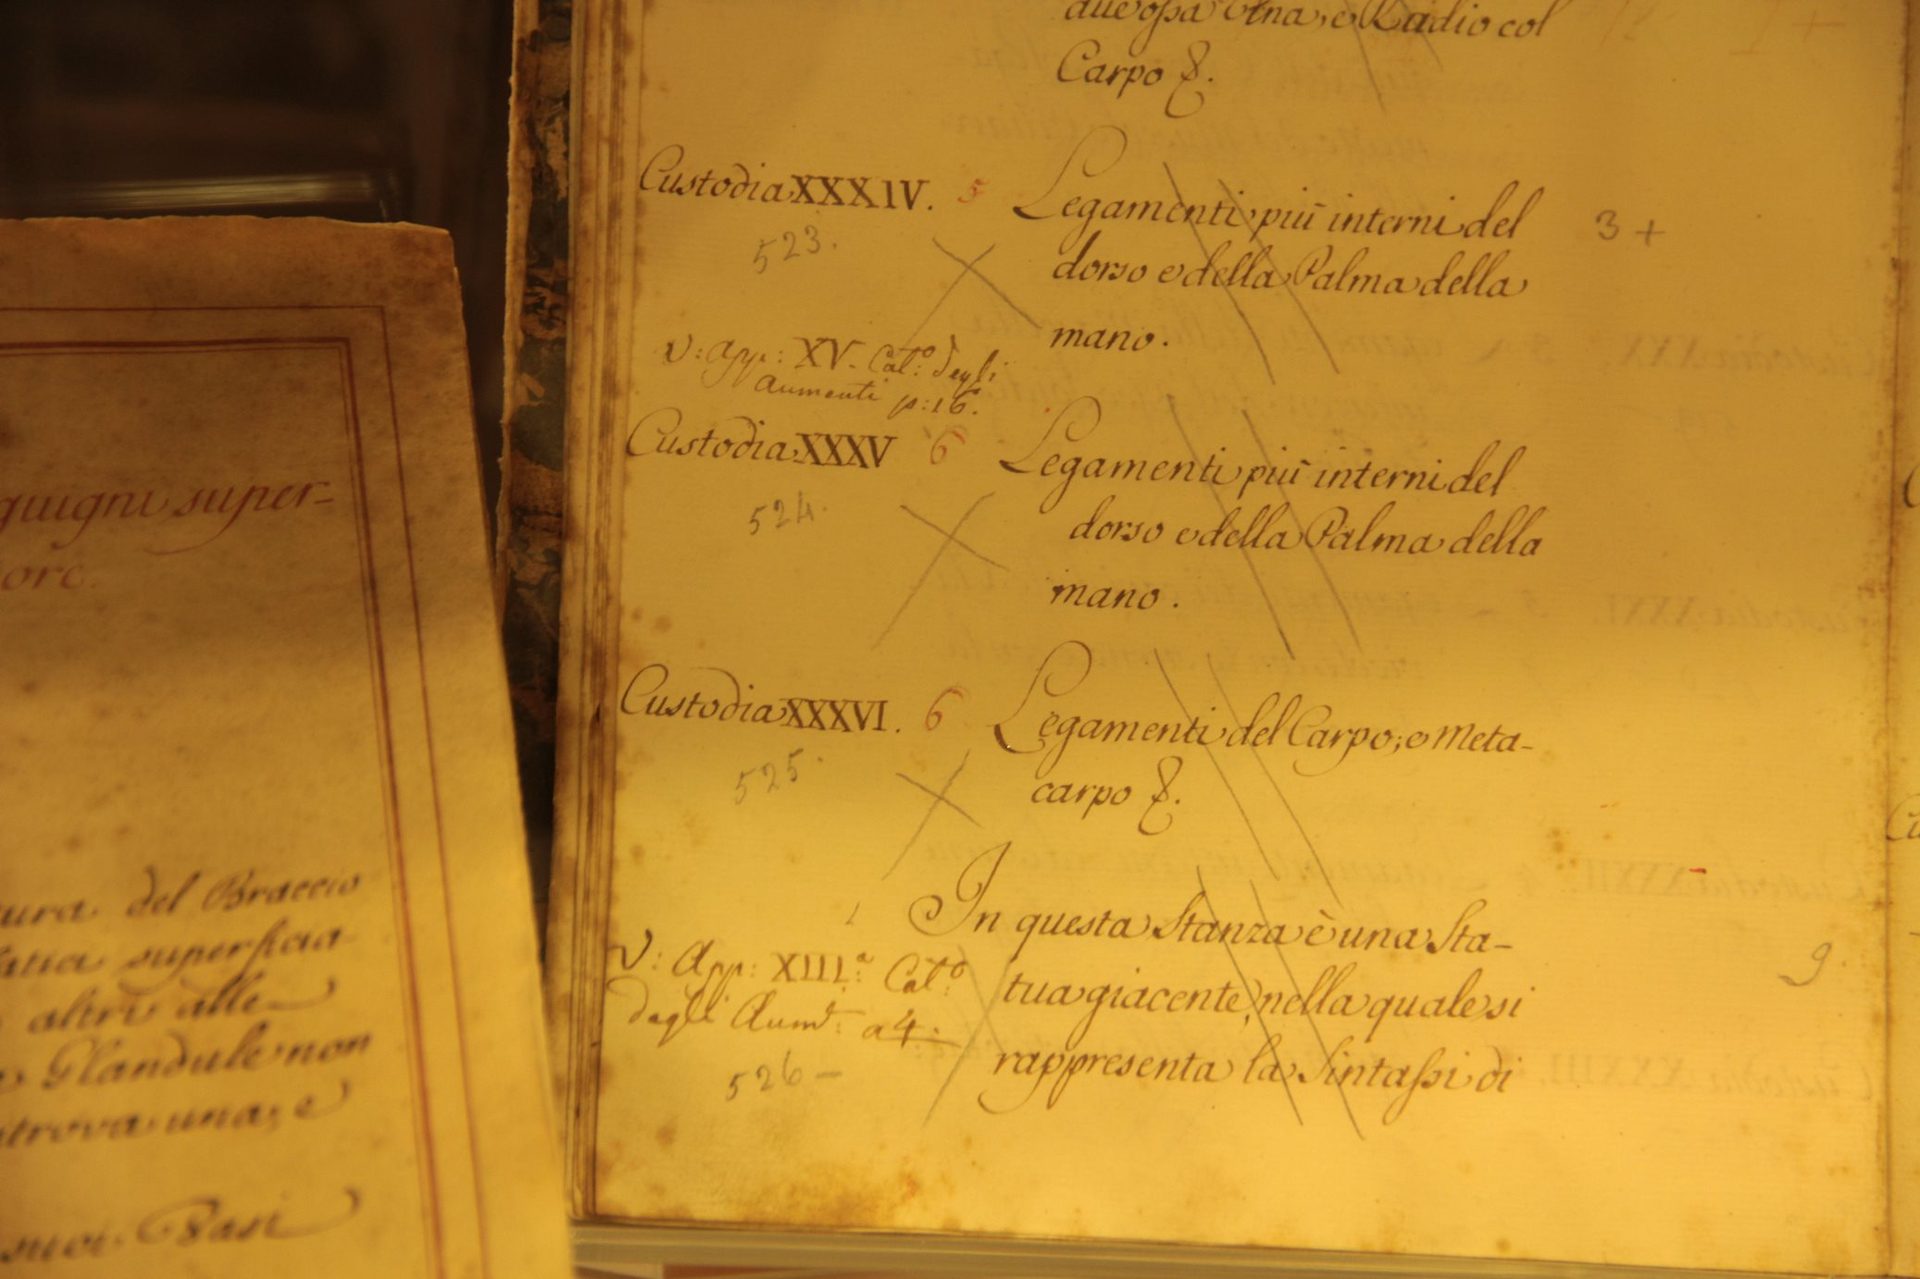 due ossa Ulna, e Radio col
Carpo &.
Custodia XXXIV. 5 Legamenti più interni del 3 +
523. dorso e della Palma della
mano.
V: App: XV. Cat.º degli
Aumenti p: 16.
Custodia XXXV 6 Legamenti più interni del
524. dorso e della Palma della
mano.
Custodia XXXVI. 6 Legamenti del Carpo, e Meta-
525. carpo &.
In questa Stanza è una Sta-
V: App: XIII.ª Cat.º tua giacente, nella quale si 9.
degli Aum.ti a 4.
rappresenta la Sintassi di
526 –
guigni super-
ore.
tura del Braccio
superficia
altri alle
Glandule non
trova una, e
suoi Rasi